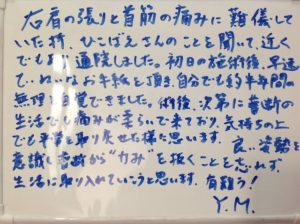 右肩の張りと首筋の痛みに難儀して
いた折、ひこばえさんのことを聞いて、近く
でもあり通院しました。初日の施術後、早速
ていねいなお手紙を頂き、自分でも約半年間の
無理を自覚できました。術後、次第に普段の
生活でも痛みが柔らいで来ており、気持ちの上
でも余裕を取り戻せた様に思います。良い姿勢を
意識し普段から"力み"を抜くことを忘れず、
生活に取り入れていこうと思います。有難う!
Y.M.